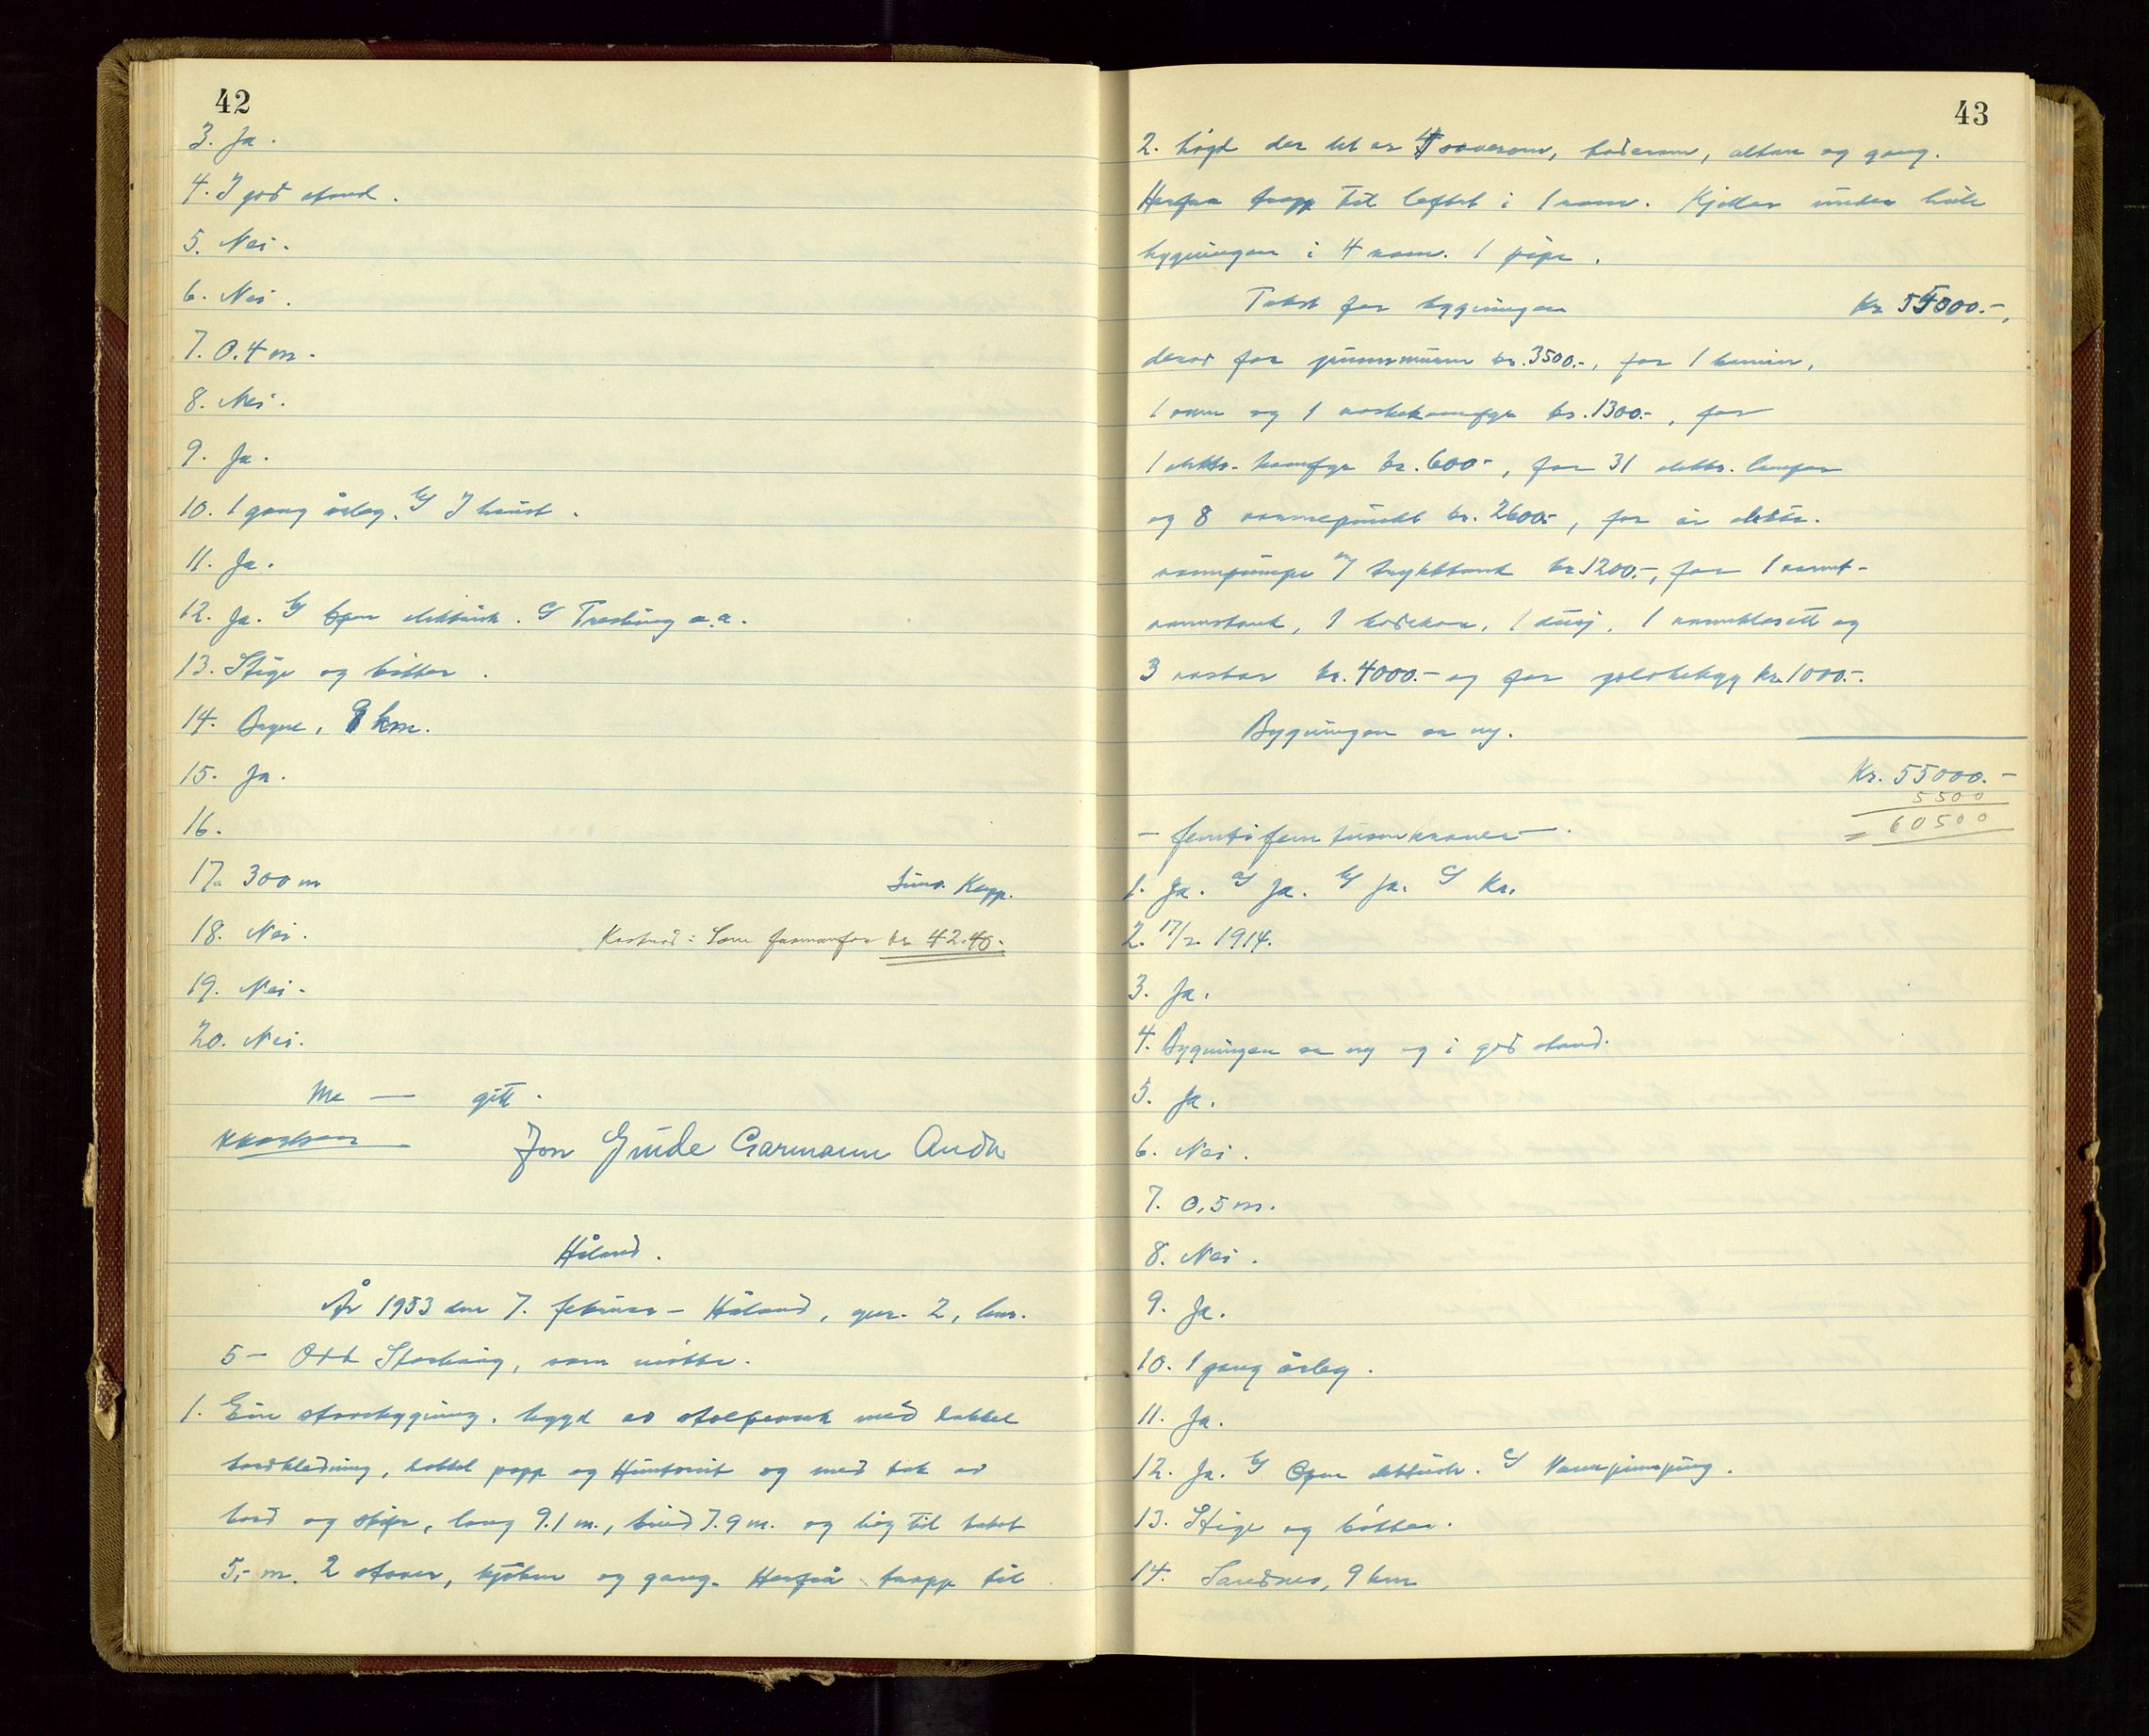 42
3. Ja.
4. I god stand.
5. Nei.
6. Nei.
7. 0.4 m.
8. Nei.
9. Ja.
10. 1 gang årleg. b/ I haust.
11. Ja.
12. Ja. b/ Open elektrisk. c/ Tresking o.a.
13. Stige og bøtter.
14. Bryne, 9 km.
15. Ja.
16.
17. 300 m
18. Nei.
Kostnad: Som framanfor kr 42.40.
19. Nei.
20. Nei.
Me — gitt.
Jon Gude Garmann Anda
Håland.
År 1953 den 7. februar – Håland, gnr. 2, bnr.
5 – Odd Storhaug, som møtte.
1. Ein stovebygning, bygd av stolpeverk med dobbel
bordkledning, dobbel papp og Huntonit og med tak av
bord og skifer, lang 9.1 m., breid 7.9 m. og høg til taket
5,- m. 2 stover, kjøken og gang. Herfrå trapp til
43
2. høgd der det er 4 soverom, baderom, altan og gang.
Herfra trapp til loftet i 1 rom. Kjeller under heile
bygningen i 4 rom. 1 pipe.
Takst for bygningen kr 55000.-,
derav for grunnmuren kr. 3500.-, for 1 kamin,
1 omn og 1 vaskekomfyr kr. 1300.-, for
1 elektr. komfyr kr. 600.-, for 31 elektr. lamper
og 8 varmepunkt kr. 2600.-, for ei elektr.
vannpumpe m/ trykktank kr 1200.-, for 1 varmt-
vannstank, 1 badekar, 1 dusj, 1 vannklosett og
3 vaskar kr. 4000.- og for golvbelegg kr. 1000.-.
Bygningen er ny.
Kr. 55000.-
5500
= 60500
– femtifem tusen kroner –.
1. Ja. a/ Ja. b/ Ja. c/ Kr.
2. 17/2. 1914.
3. Ja.
4. Bygningen er ny og i god stand.
5. Ja.
6. Nei.
7. 0,5 m.
8. Nei.
9. Ja.
10. 1 gang årleg.
11. Ja.
12. Ja. b/ Open elektrisk. c/ Vannpumping.
13. Stige og bøtter.
14. Sandnes, 9 km